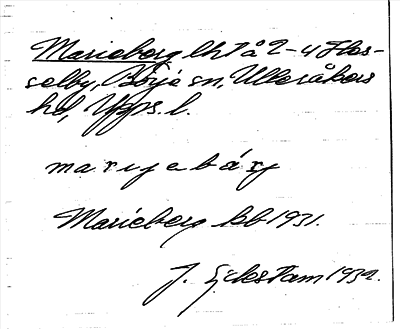 Marieberg lht å 2-4 Hes-
selby, Börje sn, Ulleråkers
hd, Upps. l.
marɩyebárj
Marieberg kb 1931.
J. Ejdestam 1932.